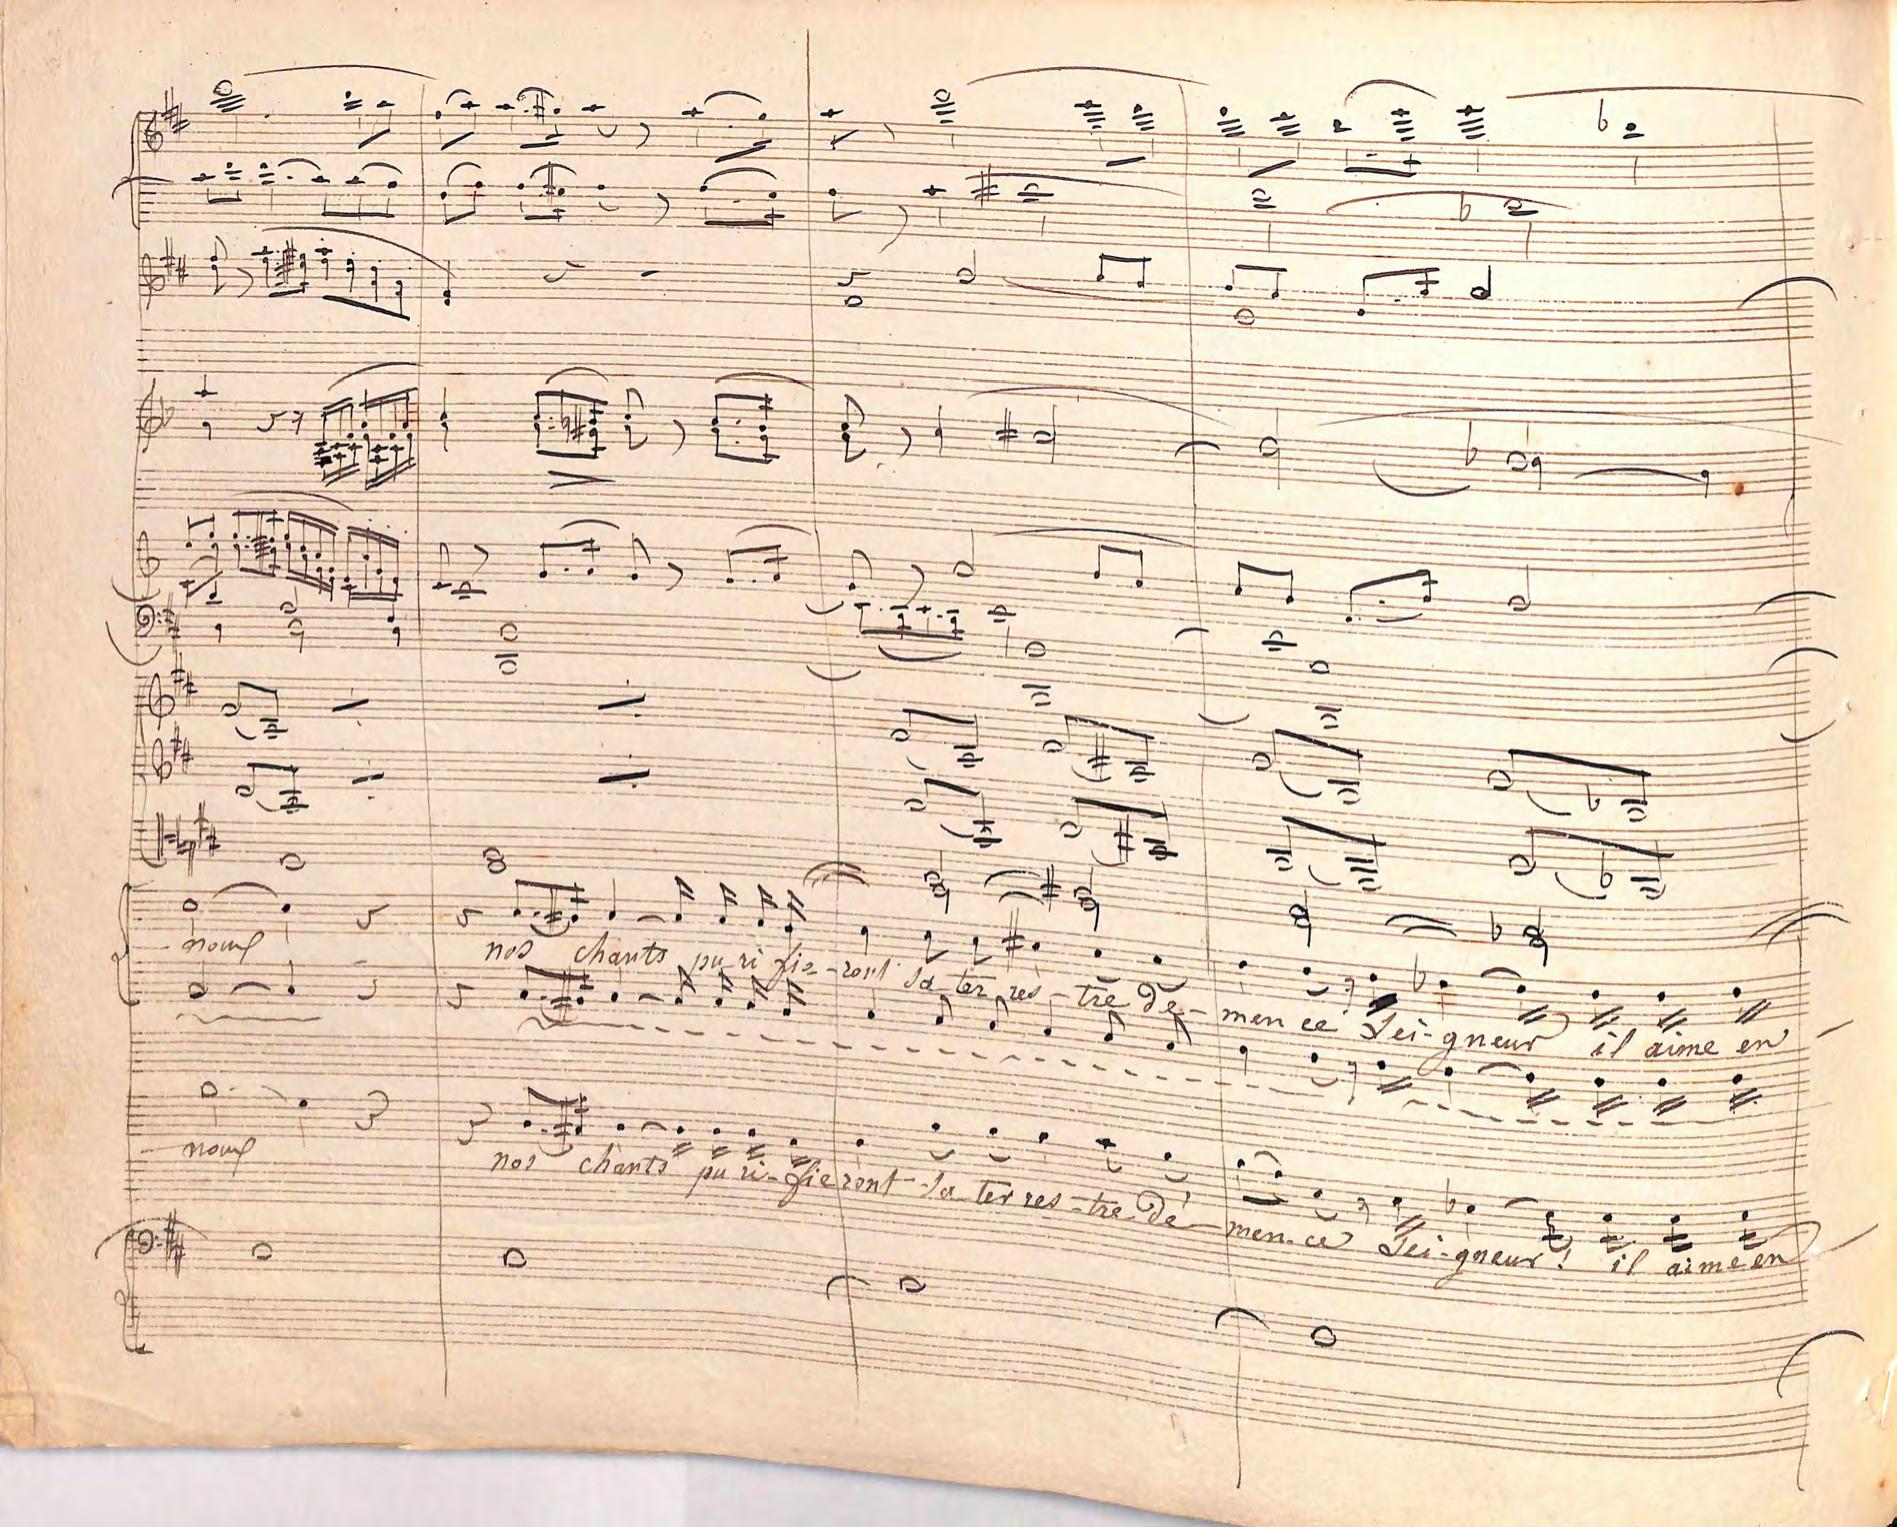 nous nos chants pu ri fie-ront sa ter res-tre dé-men ce Sei-gneur il aime en
nous nos chants pu ri-fie ront sa ter res-tre dé-men-ce Sei-gneur! il aime en